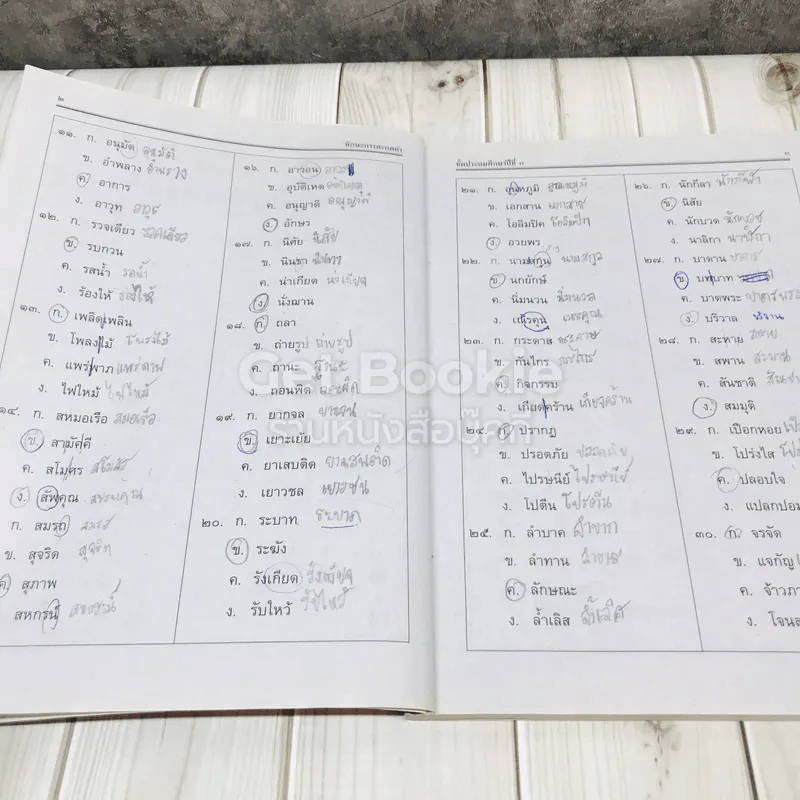 ๒
ทักษะการสะกดคำ
๑๑. ก. อนุมัด อนุมัติ
ข. อำพลาง อำพราง
ค. อาการ
ง. อาวุท อาวุธ
๑๒. ก. รวจเดียว รวดเดียว
ข. รบกวน
ค. รสน้ำ รดน้ำ
ง. ร้องให้ ร้องไห้
๑๓. ก. เพลิดเพลิน
ข. โพลงไม้ โพรงไม้
ค. แพร่พาภ แพร่ภาพ
ง. ไฟใหม้ ไฟไหม้
๑๔. ก. สหมอเรือ สมอเรือ
ข. สามัคคี
ค. สโมศร สโมสร
ง. สัพคุณ สรรพคุณ
ก. สมรถ สมรส
ข. สุจริด สุจริต
ค. สุภาพ
สหกรนี สหกรณ์
๑๖. ก. อาวอน อาวรณ์
ข. อุบัติเหด อุบัติเหตุ
ค. อนุญาติ อนุญาต
ง. อักษร
๑๗. ก. นิศัย นิสัย
ข. นินธา นินทา
ค. น่าเกียด น่าเกลียด
ง. นั่งฌาน
๑๘. ก. ถลา
ข. ถ่ายรูป ถ่ายรูป
ค. ถานะ ฐานะ
ง. ถอนพิด ถอนพิษ
๑๙. ก. ยากจล ยากจน
ข. เยาะเย้ย
ค. ยาเสบติด ยาเสพติด
ง. เยาวชล เยาวชน
๒๐. ก. ระบาท ระบาด
ข. ระฆัง
ค. รังเกียด รังเกียจ
ง. รับใหว้ รับไหว้
ชั้นประถมศึกษาปีที่ ๓
๓
๒๑. ก. อุนหภูมิ อุณหภูมิ
ข. เอกสาน เอกสาร
ค. โอลิมปิค โอลิมปิก
ง. อวยพร
๒๒. ก. นามสกุน นามสกุล
ข. นกยักษ์
ค. นิ่มนวน นิ่มนวล
ง. เณรคุน เนรคุณ
๒๓. ก. กระดาส กระดาษ
ข. กันไกร กรรไกร
ค. กิจกรรม
ง. เกียดคร้าน เกียจคร้าน
๒๔. ก. ปรากฏ
ข. ปรอดภัย ปลอดภัย
ค. ไปรษนีย์ ไปรษณีย์
ง. โปตีน โปรตีน
๒๕. ก. ลำบาค ลำบาก
ข. ลำทาน ลำธาร
ค. ลักษณะ
ง. ล้ำเลิส ล้ำเลิศ
๒๖. ก. นักกีลา นักกีฬา
ข. นิสัย
ค. นักบวด นักบวช
ง. นาลิกา นาฬิกา
๒๗. ก. บาดาน บาดาล
ข. บทบาท
ค. บาดพระ
ง. บริวาล บริวาร
๒๘. ก. สะหาย สหาย
ข. สพาน สะพาน
ค. สันชาติ
ง. สมมุติ
๒๙. ก. เปือกหอย
ข. โปร่งใส
ค. ปลอบใจ
ง. แปลกปอม
๓๐. ก. จรจัด
ข. แจกัญ
ค. จ้าวภา
ง. โจนส
Get Bookie
ร้านหนังสือบุ๊คกี้